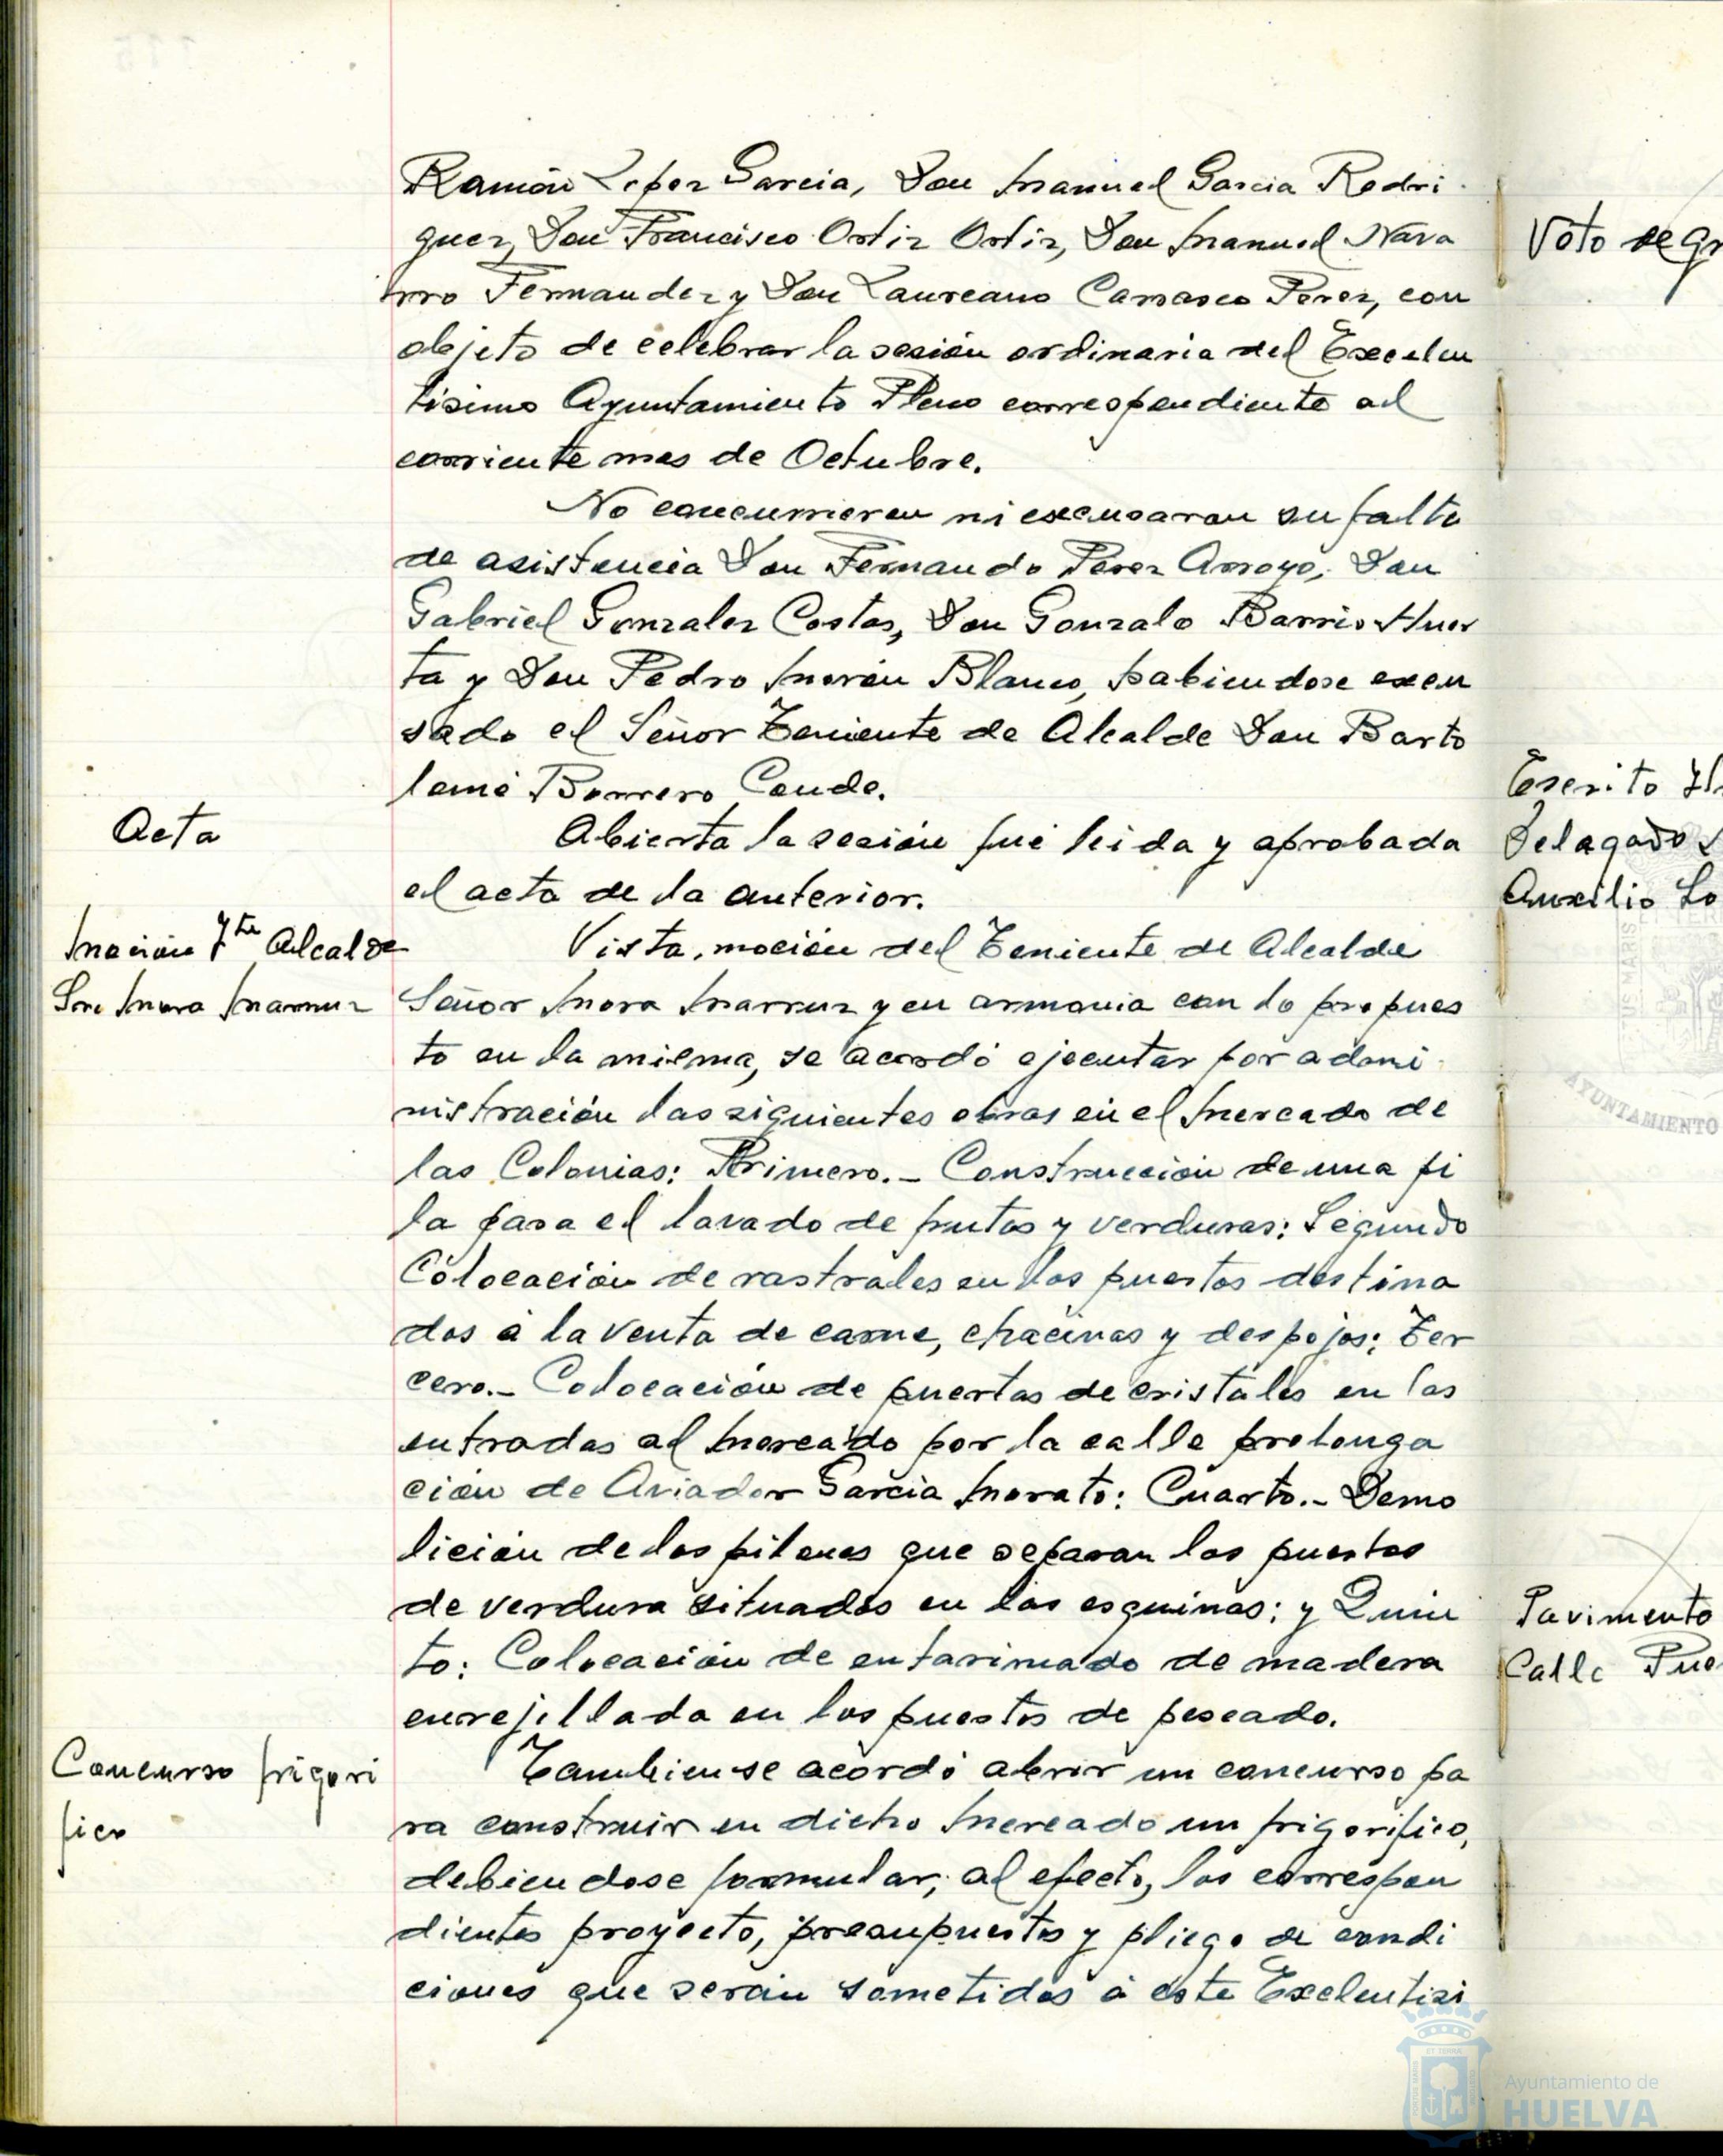 Ramón Lopez Garcia, Don Manuel Garcia Rodri
guez, Don Francisco Ortiz Ortiz, Don Manuel Nava
rro Fernandez y Don Laureano Carrasco Perez, con
objeto de celebrar la sesión ordinaria del Excelen
tisimo Ayuntamiento Pleno correspondiente al
corriente mes de Octubre.
No concurrieron ni excusaron su falta
de asistencia Don Fernando Perez Arroyo, Don
Gabriel Gonzalez Costas, Don Gonzalo Barrio Huer
ta y Don Pedro Morón Blanco, habiendose excu
sado el Señor Teniente de Alcalde Don Barto
lomé Borrero Conde.
Acta
Abierta la sesión fué leida y aprobada
el acta de la anterior.
Moción Tte Alcalde
Sr. Mora Marruz
Vista, moción del Teniente de Alcalde
Señor Mora Marruz y en armonia con lo propues
to en la misma, se acordó ejecutar por admi
nistración las siguientes obras en el Mercado de
las Colonias: Primero.- Construcción de una pi
la para el lavado de frutas y verduras: Segundo
Colocación de rastrales en los puestos destina
dos á la venta de carne, chacinas y despojos; Ter
cero.- Colocación de puertas de cristales en las
entradas al Mercado por la calle prolonga
ción de Aviador Garcia Morato: Cuarto.- Demo
lición de los pilones que separan los puestos
de verdura situados en las esquinas; y Quin
to: Colocación de entarimado de madera
enrejillada en los puestos de pescado.
Concurso frigori
fico
Tambien se acordó abrir un concurso pa
ra construir en dicho Mercado un frigorifico,
debiendose formular, al efecto, los correspon
dientes proyecto, presupuestos y pliego de condi
ciones que serán sometidos á este Exelentisi
Voto de Gr
Escrito
Delegado
Auxilio So
Pavimento
Calle Pue
AYUNTAMIENTO
Ayuntamiento de
HUELVA